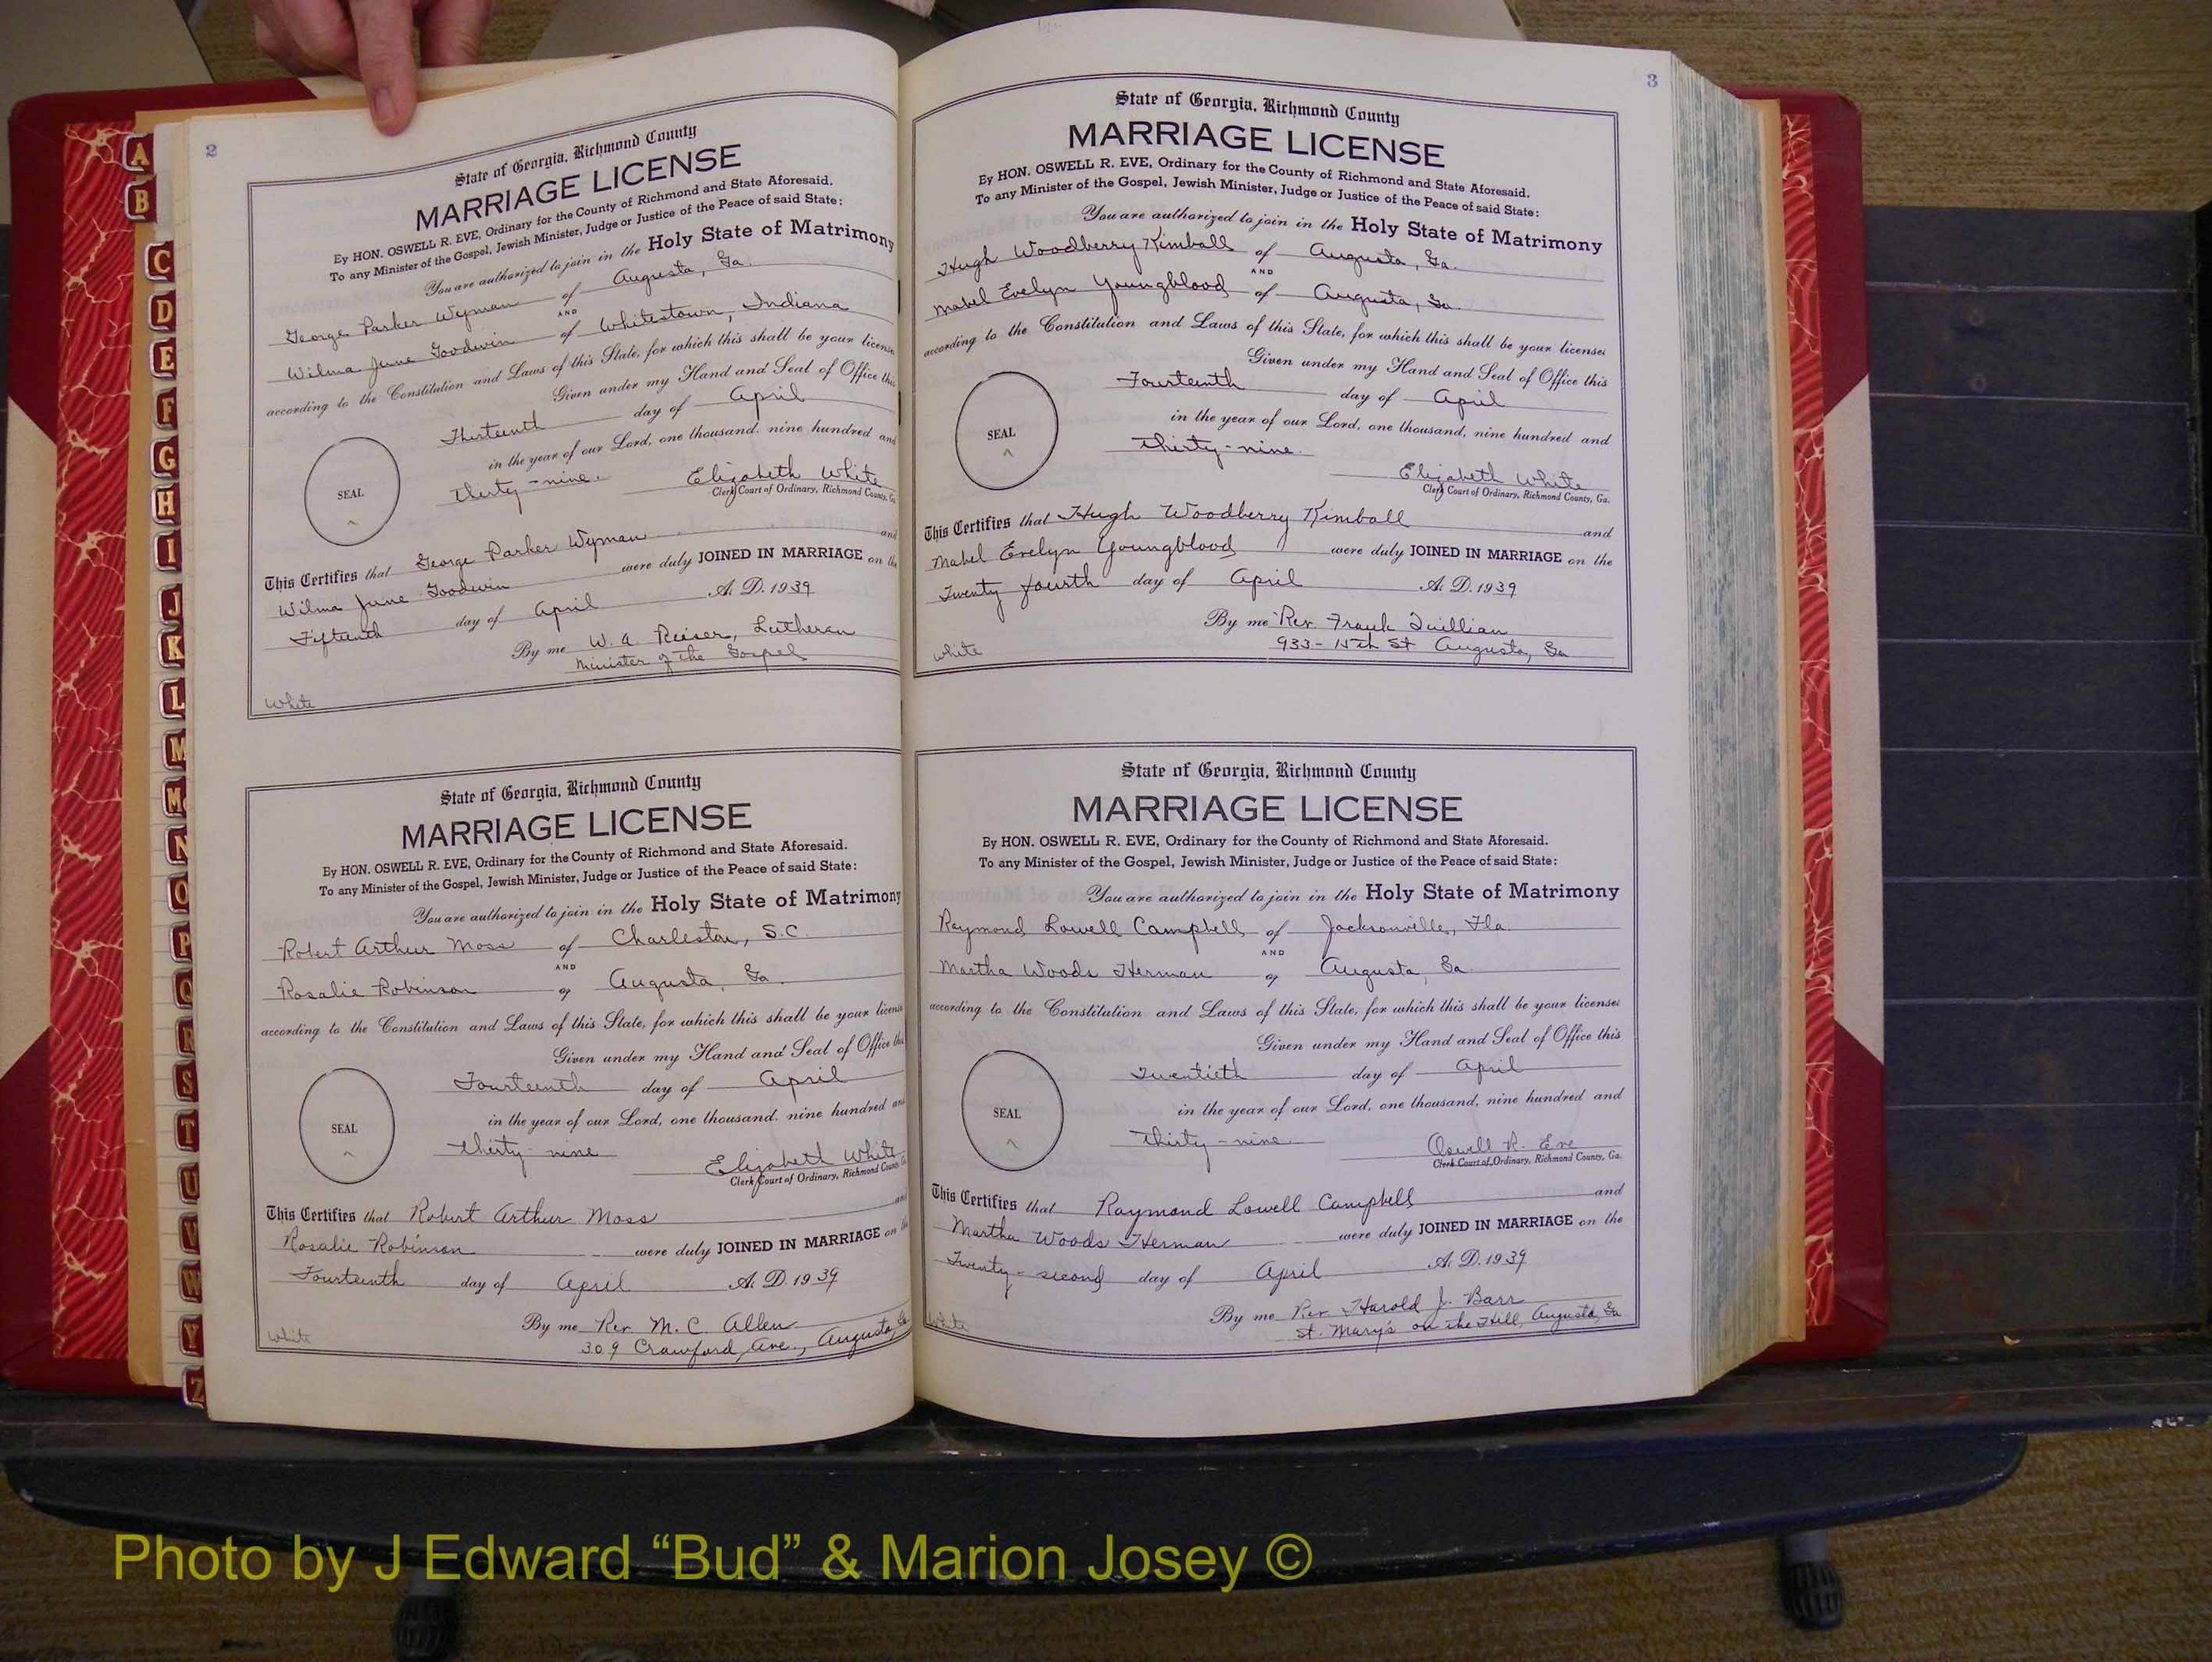 2
State of Georgia, Richmond County
MARRIAGE LICENSE
By HON. OSWELL R. EVE, Ordinary for the County of Richmond and State Aforesaid.
To any Minister of the Gospel, Jewish Minister, Judge or Justice of the Peace of said State:
You are authorized to join in the Holy State of Matrimony
George Parker Wyman of Augusta, Ga.
AND
Wilma June Goodwin of Whitestown, Indiana
according to the Constitution and Laws of this State, for which this shall be your license
Given under my Hand and Seal of Office this
Thirteenth day of April
in the year of our Lord, one thousand, nine hundred and
SEAL
Thirty-nine. Elizabeth White
Clerk Court of Ordinary, Richmond County, Ga.
This Certifies that George Parker Wyman and
Wilma June Goodwin were duly JOINED IN MARRIAGE on the
Fifteenth day of April A. D. 1939
By me W. A. Reiser, Lutheran
Minister of the Gospel
White
State of Georgia, Richmond County
MARRIAGE LICENSE
By HON. OSWELL R. EVE, Ordinary for the County of Richmond and State Aforesaid.
To any Minister of the Gospel, Jewish Minister, Judge or Justice of the Peace of said State:
You are authorized to join in the Holy State of Matrimony
Robert Arthur Moss of Charleston, S.C.
AND
Rosalie Robinson of Augusta, Ga.
according to the Constitution and Laws of this State, for which this shall be your license
Given under my Hand and Seal of Office this
Fourteenth day of April
in the year of our Lord, one thousand, nine hundred and
SEAL
Thirty-nine Elizabeth White
Clerk Court of Ordinary, Richmond County
This Certifies that Robert Arthur Moss and
Rosalie Robinson were duly JOINED IN MARRIAGE on the
Fourteenth day of April A. D. 1939
By me Rev. M. C Allen
309 Crawford Ave., Augusta, Ga
White
3
State of Georgia, Richmond County
MARRIAGE LICENSE
By HON. OSWELL R. EVE, Ordinary for the County of Richmond and State Aforesaid.
To any Minister of the Gospel, Jewish Minister, Judge or Justice of the Peace of said State:
You are authorized to join in the Holy State of Matrimony
Hugh Woodberry Kimball of Augusta, Ga.
AND
Mabel Evelyn Youngblood of Augusta, Ga.
according to the Constitution and Laws of this State, for which this shall be your license:
Given under my Hand and Seal of Office this
Fourteenth day of April
in the year of our Lord, one thousand, nine hundred and
SEAL
Thirty-nine. Elizabeth White
Clerk Court of Ordinary, Richmond County, Ga.
This Certifies that Hugh Woodberry Kimball and
Mabel Evelyn Youngblood were duly JOINED IN MARRIAGE on the
Twenty fourth day of April A. D. 1939
By me Rev. Frank Quillian
933-15th St Augusta, Ga
White
State of Georgia, Richmond County
MARRIAGE LICENSE
By HON. OSWELL R. EVE, Ordinary for the County of Richmond and State Aforesaid.
To any Minister of the Gospel, Jewish Minister, Judge or Justice of the Peace of said State:
You are authorized to join in the Holy State of Matrimony
Raymond Lowell Campbell of Jacksonville, Fla.
AND
Martha Woods Herman of Augusta, Ga.
according to the Constitution and Laws of this State, for which this shall be your license:
Given under my Hand and Seal of Office this
Twentieth day of April
in the year of our Lord, one thousand, nine hundred and
SEAL
Thirty-nine. Oswell R. Eve
Clerk Court of Ordinary, Richmond County, Ga.
This Certifies that Raymond Lowell Campbell and
Martha Woods Herman were duly JOINED IN MARRIAGE on the
Twenty-second day of April A. D. 1939
By me Rev. Harold J. Barr
St. Mary's on the Hill, Augusta, Ga
White
A
B
C
D
E
F
G
H
I
J
K
L
M
Mc
N
O
P
Q
R
S
T
U
V
W
Y
Z
Photo by J Edward “Bud” & Marion Josey ©